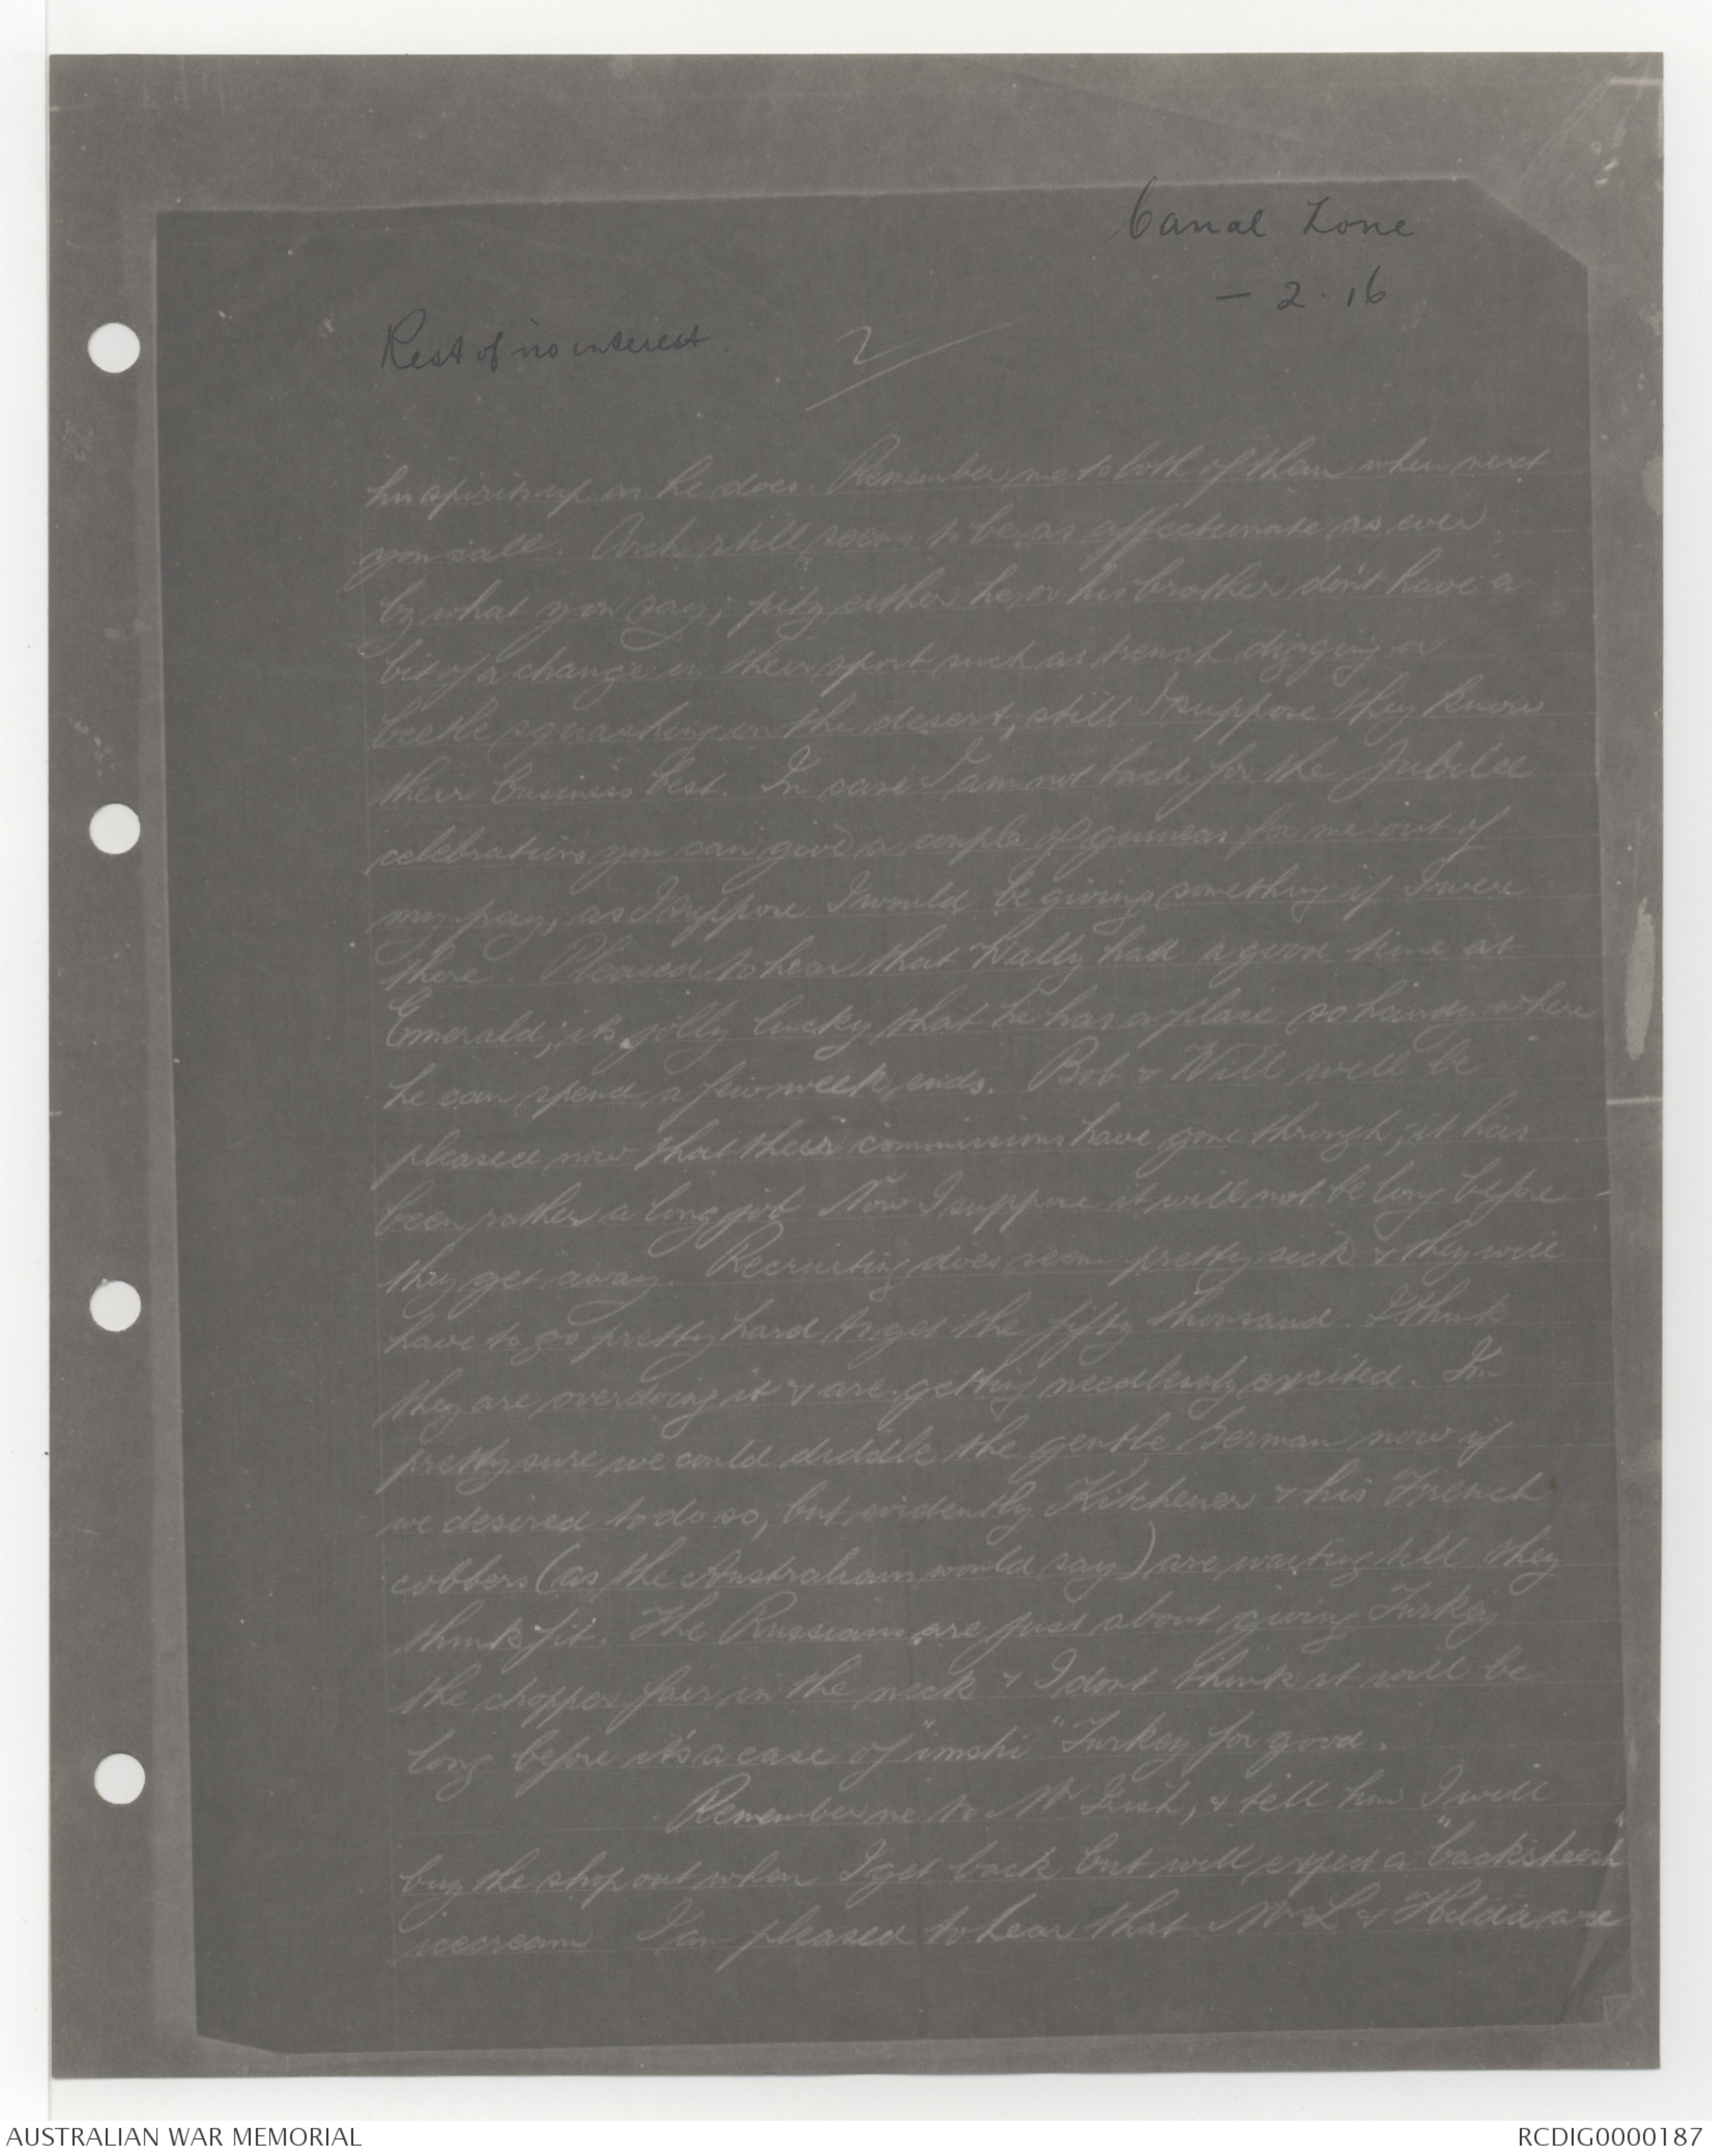 Canal Zone
- 2. 16
Rest of no interest.
2
his spirits up as he does. Remember me to both of them when next
you call. Arch still seems to be as affectionate as ever
by what you say; pity either he or his brother don't have a
bit of a change in their sport such as trench digging or
beetle squashing in the desert, still I suppose they know
their business best. In case I am not back for the Jubilee
celebrations you can give a couple of guineas for me out of
my pay, as I suppose I would be giving something if I were
there. Pleased to hear that Wally had a good time at
Emerald; its jolly lucky that he has a place so handy where
he can spend a few week ends. Bob & Will will be
pleased now that their commissions have gone through; it has
been rather a long job. Now I suppose it will not be long before
they get away. Recruiting does seem pretty sick & they will
have to go pretty hard to get the fifty thousand. I think
they are overdoing it & are getting needlessly excited. I'm
pretty sure we could diddle the gentle German now if
we desired to do so, but evidently Kitchener & his French
cobbers (as the Australians would say) are waiting till they
think fit. The Russians are just about giving Turkey
the chopper fair in the neck & I dont think it will be
long before it's a case of "imshi" Turkey for good.
Remember me to Mr Irish, & tell him I will
buy the shop out when I get back but will expect a "backsheesh"
icecream I am pleased to hear that Mrs L & Hilda are
AUSTRALIAN WAR MEMORIAL
RCDIG0000187